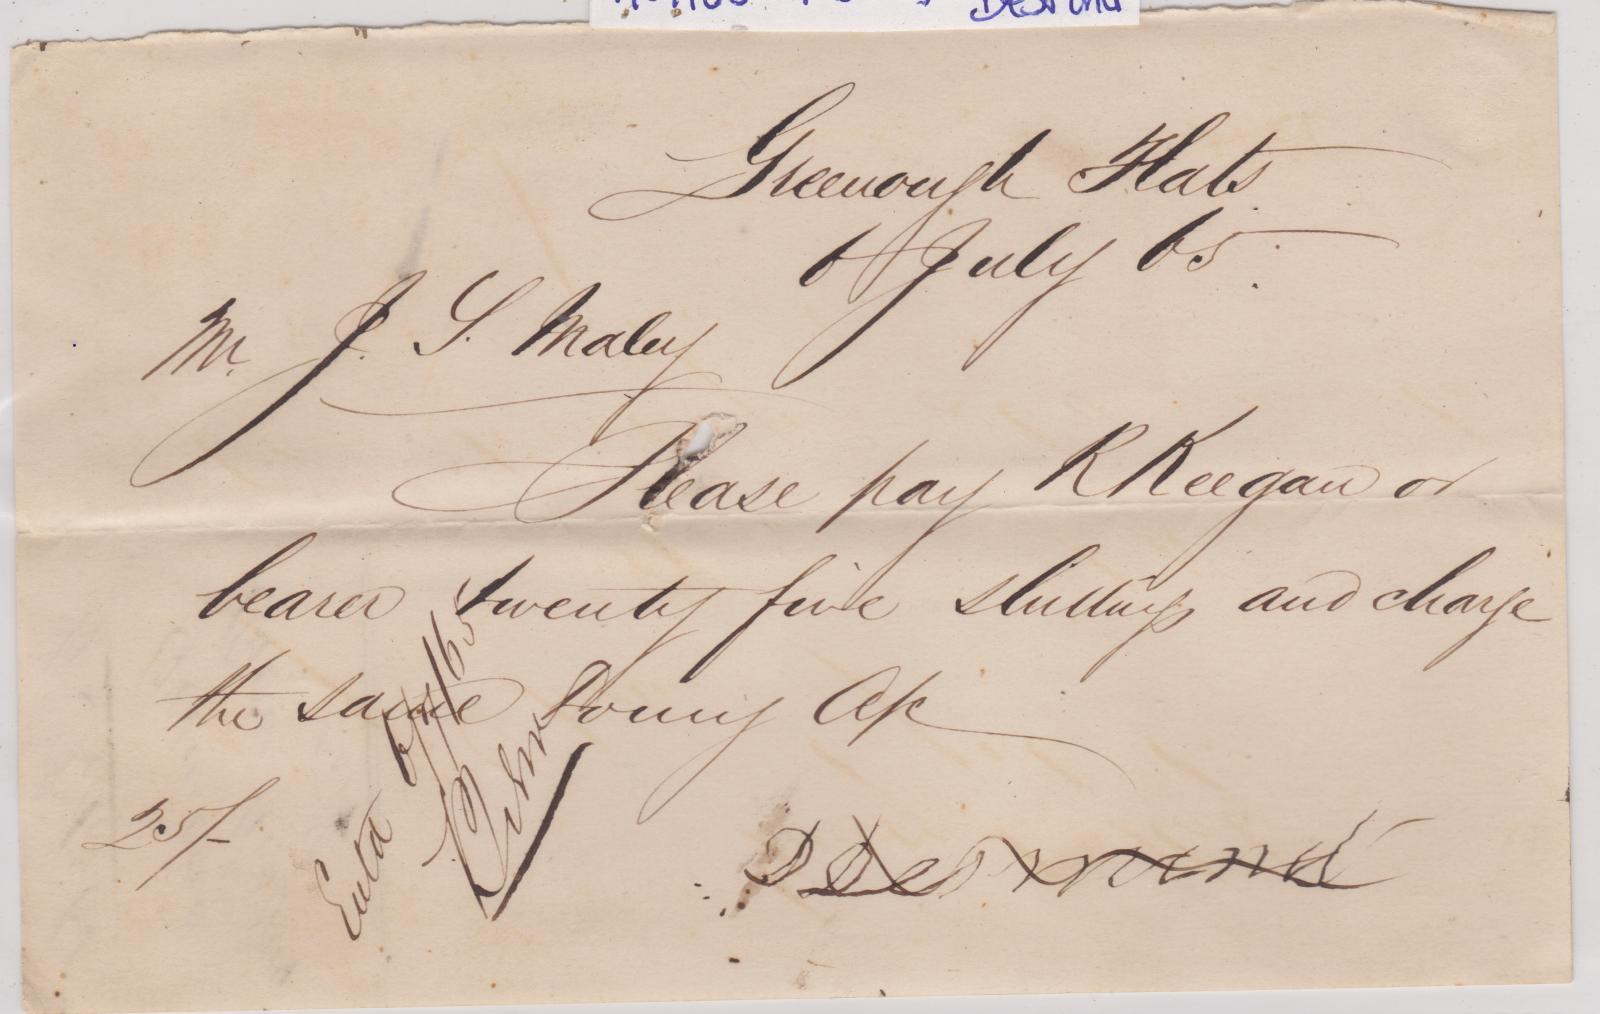 Greenough Flats
6 July 65.
Mr. J. S. Maley
Please pay R Keegan or
bearer twenty five shillings and charge
the same to my a/c
25/-
Entd 6/7/65
D Desmond